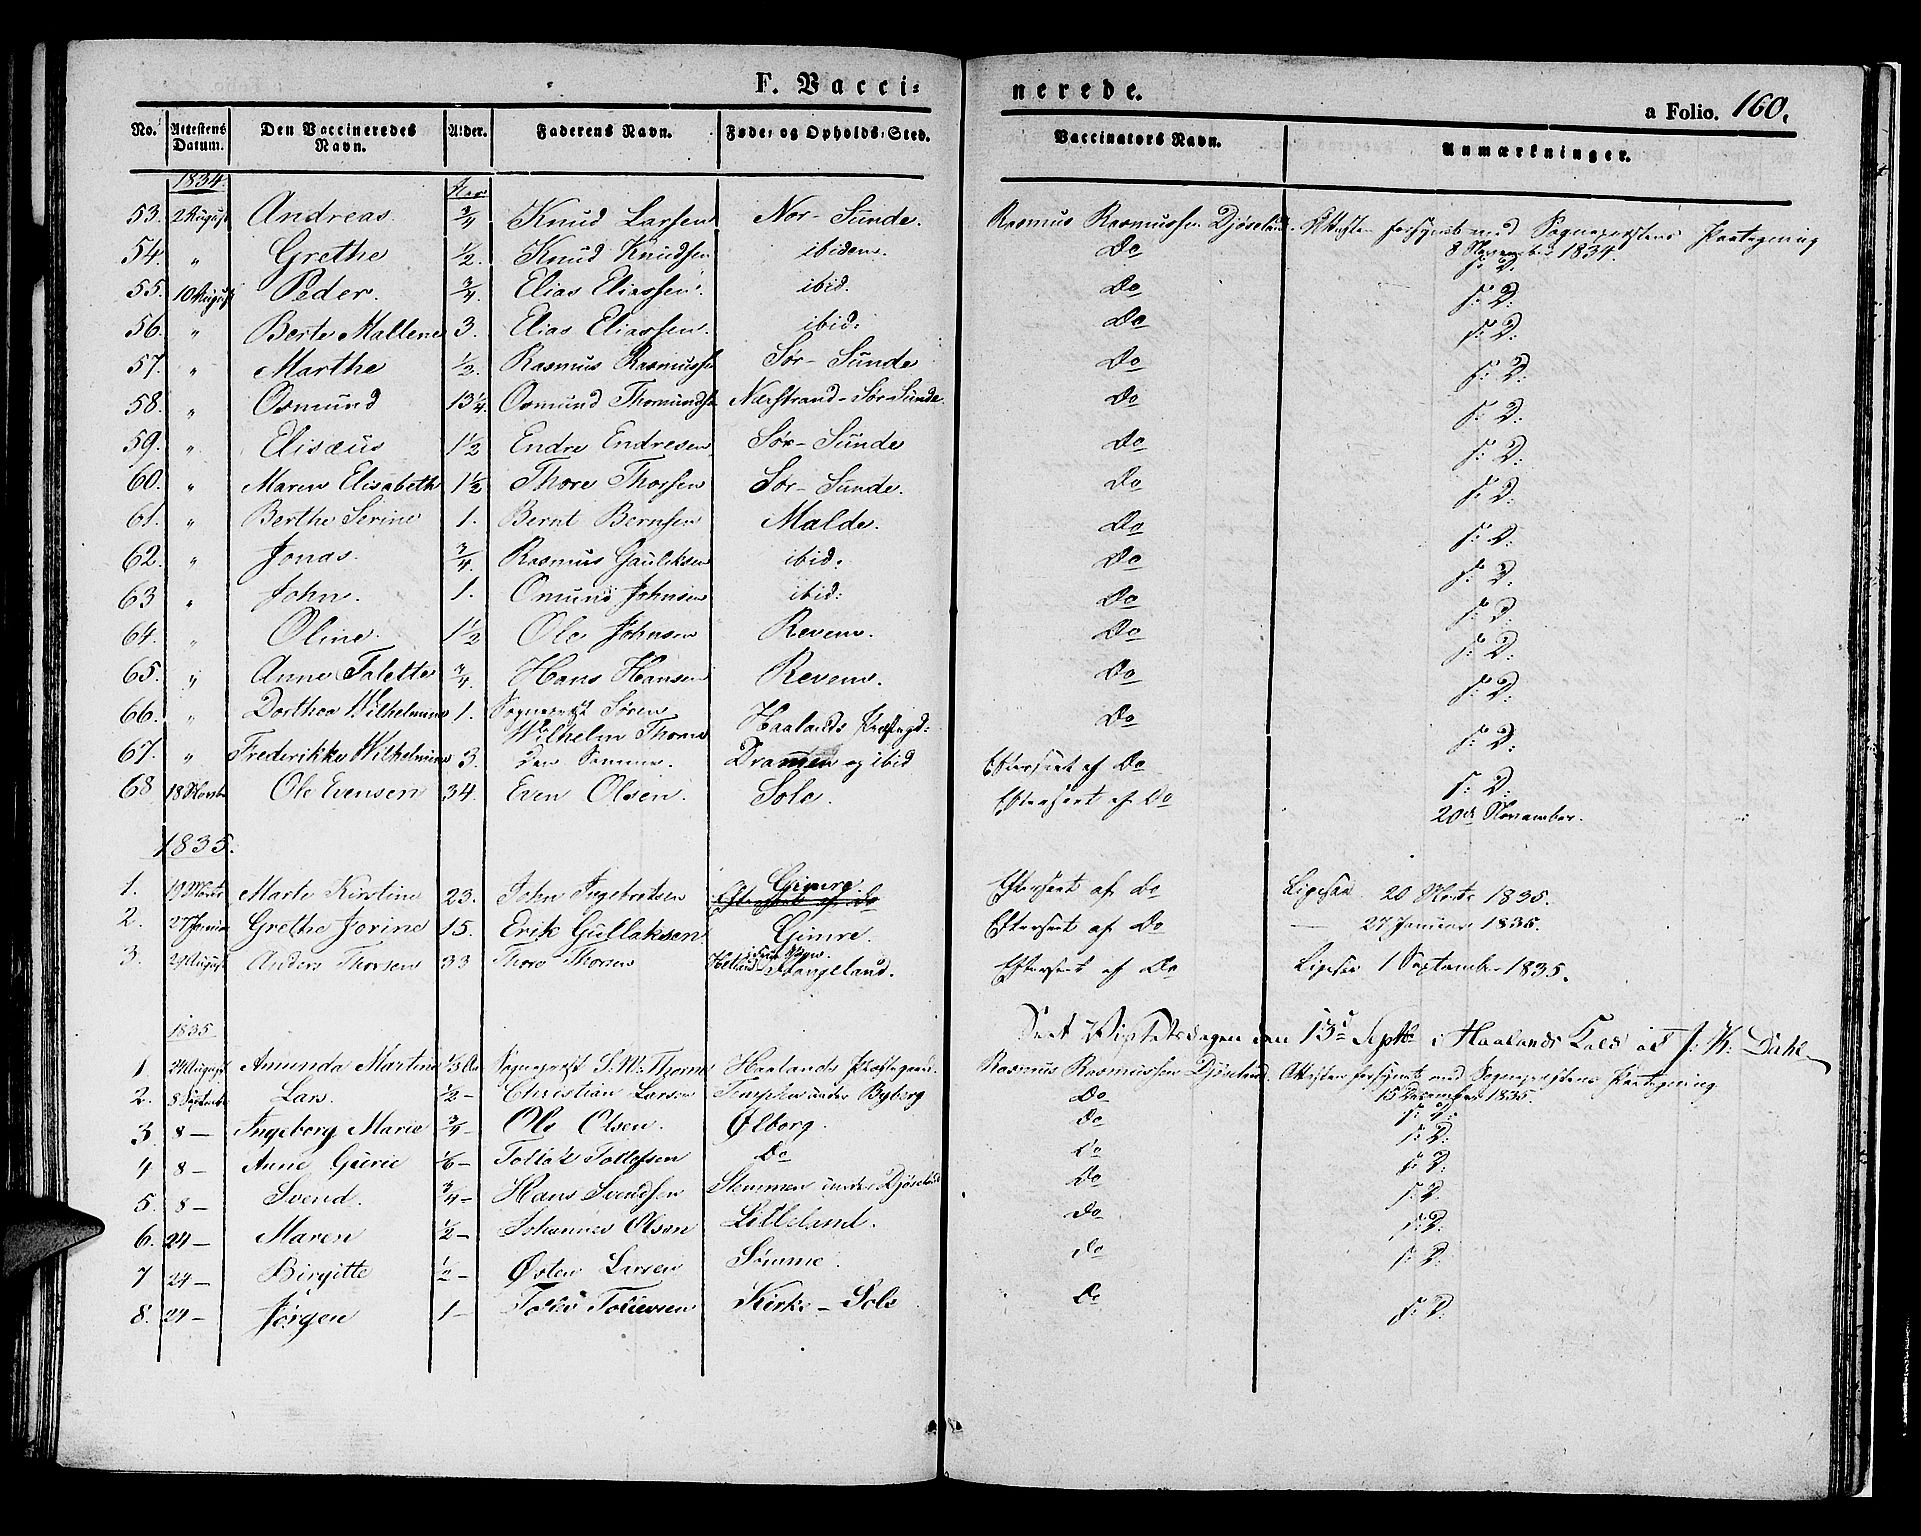 F. Vaccinerede.
a Folio. 160.
No. Attestens Datum. Den Vaccineredes Navn. Alder. Faderens Navn. Føde- og Opholds-Sted. Vaccinators Navn. Anmærkninger.
1834.
53. 2 August Andreas. 3/4 Knud Larsen Nor-Sunde. Rasmus Rasmussen Djøseland. Attesten forsynet med Sognepræstens Paategning
8 November 1834.
54. " Grethe 1/2. Knud Knudsen ibidem. Do f: D:
55. 10 August Peder. 3/4. Elias Eliassen. ibid. Do f: D:
56. " Berte Mallene 3. Elias Eliassen. ibid: Do f: D:
57. " Marthe 1/2. Rasmus Rasmussen Sør-Sunde Do f: D:
58. " Osmund 13 1/4. Osmund Thormundsen Nærstrand-Sør-Sunde. Do f: D:
59. " Elisæus 1 1/2 Endre Endresen Sør-Sunde Do f: D:
60. " Maren Elisabeth 1 1/2 Thore Thorsen Sør-Sunde. Do f: D:
61. " Berthe Serine 1. Bernt Bernsen Malde. Do f: D:
62. " Jonas. 3/4. Rasmus Gauleksen ibid. Do f: D:
63 " John. 1. Omund Johnsen ibid: Do f: D:
64. " Oline. 1 1/2 Ole Johnsen Reven. Do f: D:
65. " Anne Talette 3/4. Hans Hansen Reven. Do f: D:
66. " Dorthea Wilhelmine 1. Sognepræst Søren Wilhelm Thorne Haalands Præstegd: Do f: D:
67. " Frederikke Wilhelmine 3. Den Samme. Dramen og ibid Efterseet af Do f: D:
68 18 Novbr Ole Evensen 34. Even Olsen. Sole. Efterseet af Do
20de November.
1835.
1. 19 Marts Marte Kirstine 23. John Ingebretsen Gimre. Efterseet af do 20 Marts 1835.
2. 27 Januar Grethe Jorine 15. Erik Gullaksen. Gimre. Efterseet af Do — 27 Januar 1835.
3. 29 August Anders Thorsen 33 Thore Thorsen Stangeland. Efterseet af Do 1 September 1835.
Seet Visitatsdagen den 13de Septbr i Haalands Kald af J: K: Dahl
1835
1 29 August Amunda Martine 1/3 Aar Sognepræst S. W. Thorne Haalands Præstegaard. Rasmus Rasmussen Djøseland. Attesten forsynet med Sognepræstens Paategning
15 December 1835.
2. 8 September Lars. 1/2 — Christian Larsen under Byberg Do f: D:
3. 8 — Ingeborg Marie 3/4 — Ole Olsen. Ølborg. Do f: D:
4 8 — Anne Gurie 1/6 — Tollak Tollefsen Do Do f: D:
5. 8 — Svend. 3/4 — Hans Svendsen Stemmen under Djøseland Do f: D:
6. 24 — Maren 1/2 — Johannes Olsen Lilleland. Do f: D:
7 24 — Birgitte 1/2 — Østen Larsen Sømme. Do f: D:
8. 24 — Jørgen 1 — Kirke-Sole Do f: D: